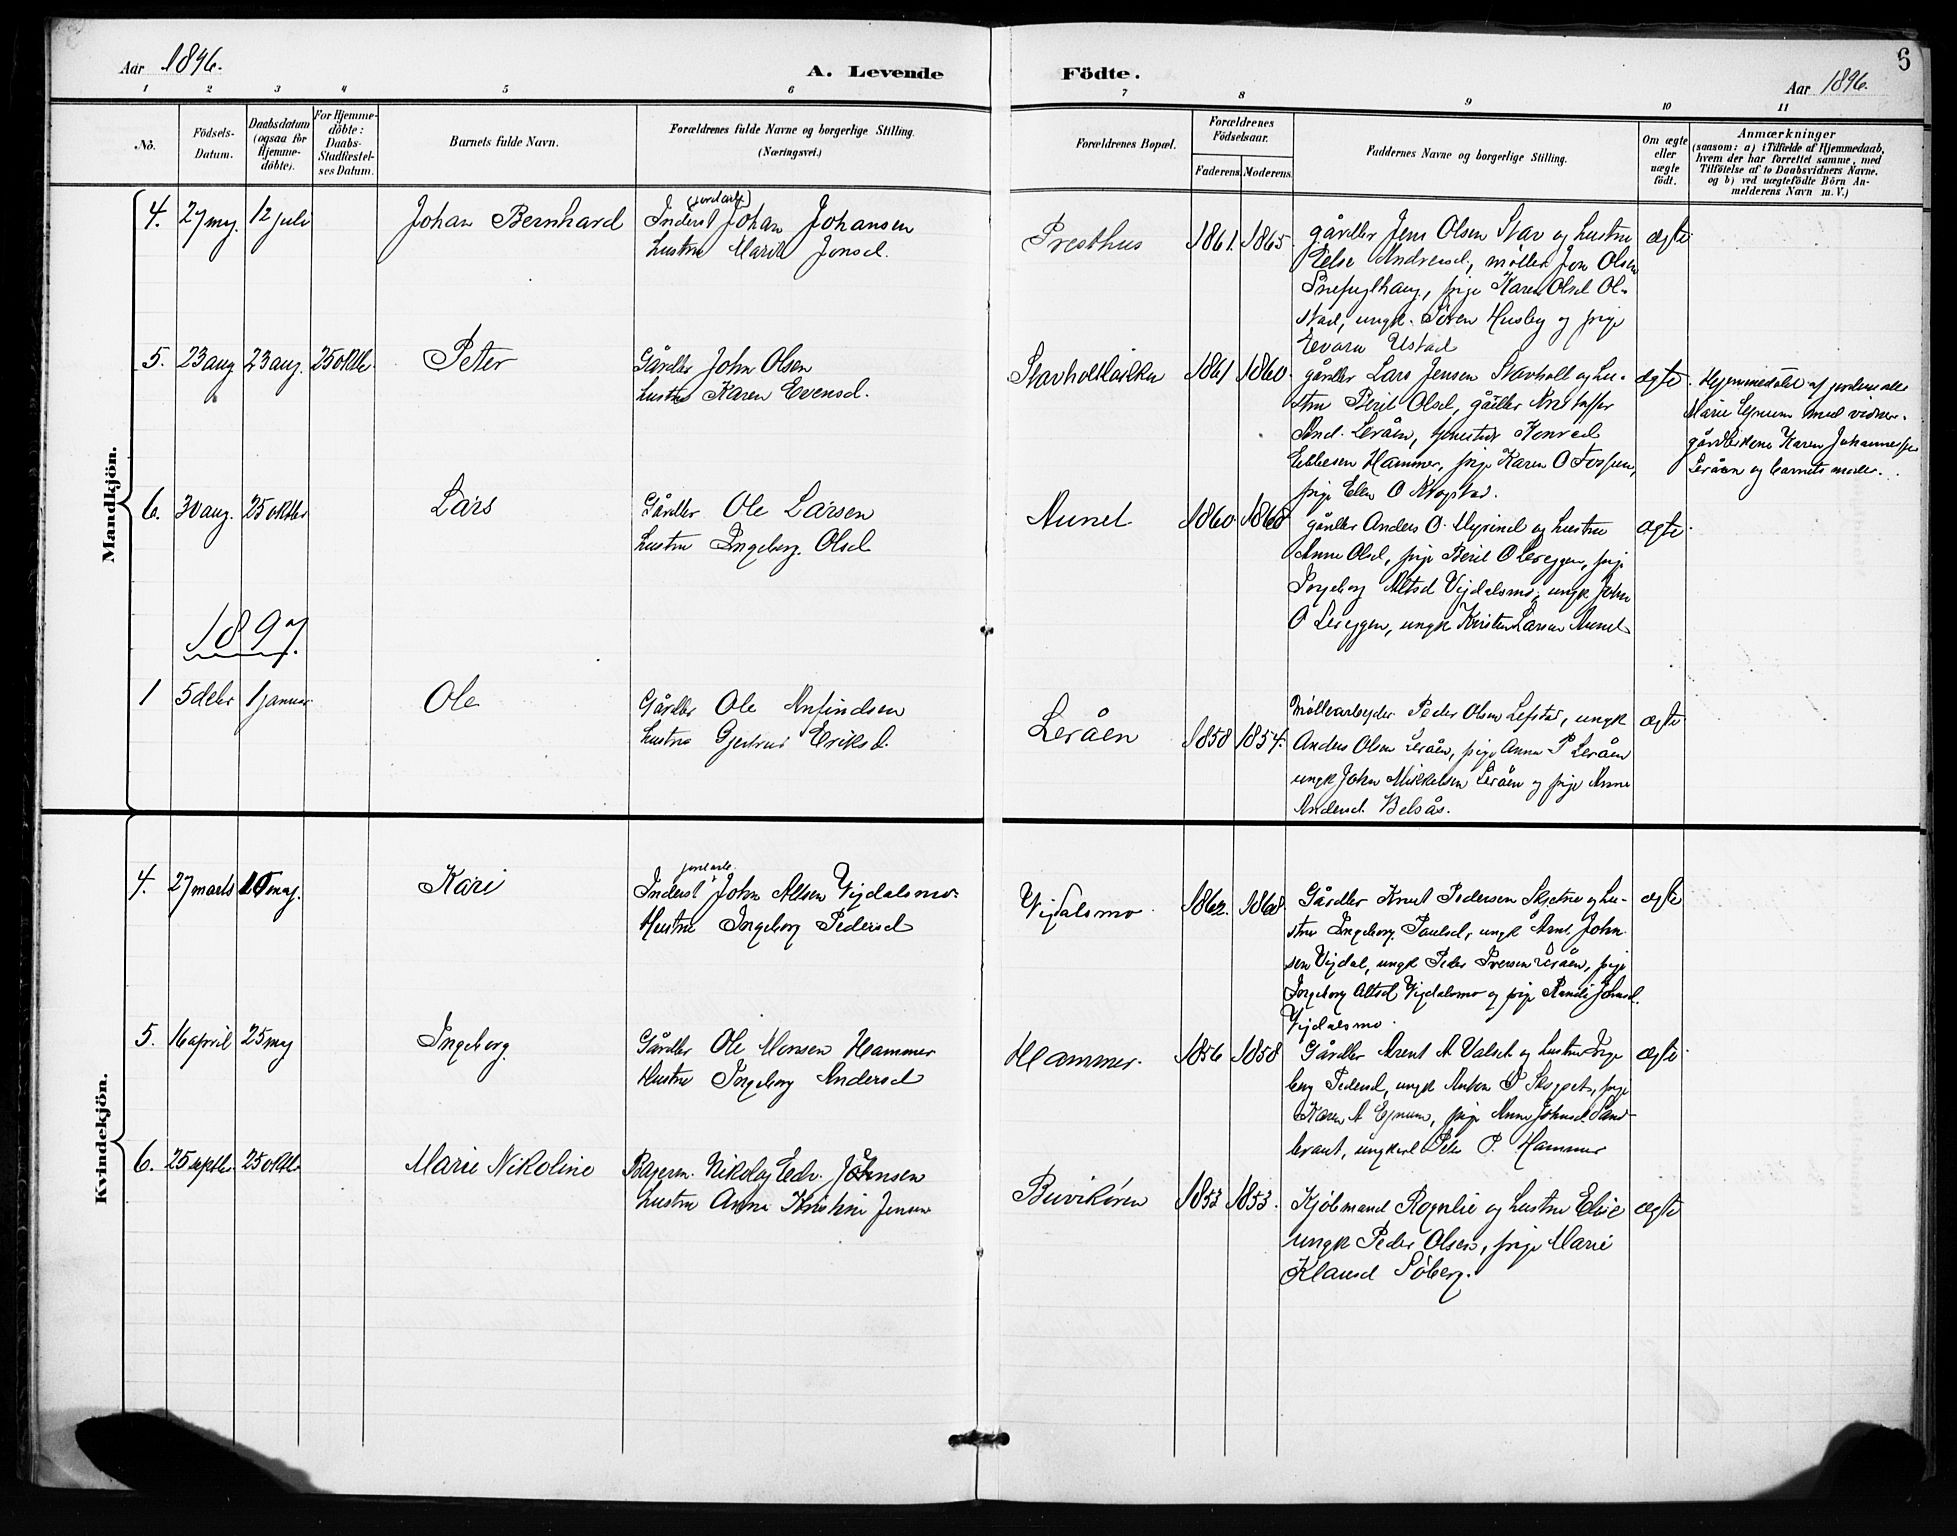 6
Aar 1896.
A. Levende Födte.
Aar 1896.
1 2 3 4 5 6 7 8 9 10 11
No.
Födsels-Datum.
Daabsdatum (ogsaa for Hjemme-döbte).
For Hjemme-döbte: Daabs-Stadfæstel-ses Datum.
Barnets fulde Navn.
Forældrenes fulde Navne og borgerlige Stilling.
(Næringsvei.)
Forældrenes Bopæl.
Forældrenes Födselsaar.
Faderens. Moderens.
Faddernes Navne og borgerlige Stilling.
Om ægte eller uægte födt.
Anmærkninger
(saasom: a) i Tilfælde af Hjemmedaab,
hvem der har forrettet samme, med
Tilföielse af to Daabsvidners Navne,
og b) ved uægtefödte Börn An-
melderens Navn m. V.)
Mandkjön.
4. 27 maj 12 juli
Johan Bernhard
(jordarb)
Inderst Johan Johansen
hustru Marit Jonsd.
Presthus
1861. 1865.
gårdbr Jens Olsen Stav og hustru
Else Andersd, møller Jon Olsen
Snefuglhaug, pige Karen Olsd Ol-
stad, ungk. Søren Husby og pige
Ustad
ægte
5. 23 aug 23 aug. 25 oktbr.
Peter
Gårdbr John Olsen
hustru Karen Evensd.
1861 1860.
gårdbr Lars Jensen Stavholt og hu-
stru Berit Olsd, gårdbr
And. Leråen, Konrad
Ebbesen Hammer, pige Karen O Fossen,
pige Elen O Krogstad.
ægte.
Hjemmedøbt af jordemoder
Marie Egnum med vidner.
gårdbrkone Karen
Leråen og barnets moder.
6. 30 aug. 25 oktbr
Lars
Gårdbr Ole Larsen
hustru Ingeborg Olsd
Aunet
1860. 1868
gårdbr Anders O. Myrind og hustru
Anne Olsd, pige Berit O Lereggen, pige
Ingeborg Altsd Vigdalsmo, ungk John
O Lereggen, ungk Kristen Larsen Aunet
ægte.
1897.
1 5 debr 1 januar
Ole
Gårdbr Ole Anfindsen
hustru Gjertrud Eriksd.
Leråen
1858 1854.
Møllearbeyder Peder Olsen Lefstad, ungk
Anders Olsen Leråen, pige Anne P Leråen
ungk John Mikkelsen Leråen og pige Anne
Andersd. Belsås.
ægte
Kvindekjön.
4. 27 marts 10 maj.
Kari
jordarb.
Inderst John Altsen Vigdalsmo.
Hustru Ingeborg Pedersd
Vigdalsmo.
1862. 1868.
Gårdbr Knut Pedersen Skjetne og hu-
stru Ingeborg Paulsd, ungk Arnt John
sen Vigdal, ungk Peder Iversen Leråen, pige
Ingeborg Altsd Vigdalsmo og pige Randi Johnsd.
Vigdalsmo.
ægte
5. 16 april 25 maj
Ingeborg
Gårdbr Ole Monsen Hammer
Hustru Ingeborg Andersd
Hammer.
1856 1858
Gårdbr Arent A Valset og hustru Inge
borg Pedersd, ungk Anton P
Karen A Egnum, pige Anne Johnsd Sand-
brant, ungkarl Peter P. Hammer
ægte.
6. 25 septbr. 25 oktbr
Marie Nikoline
Bagerm. Nikolaj Edv. Johnsen
hustru Anna Kristine Jensen
Buvikøren
1853 1853.
Kjøbmand Rognlie og hustru Elise
ungk Peder Olsen, pige Marie
Klausd Søberg.
ægte